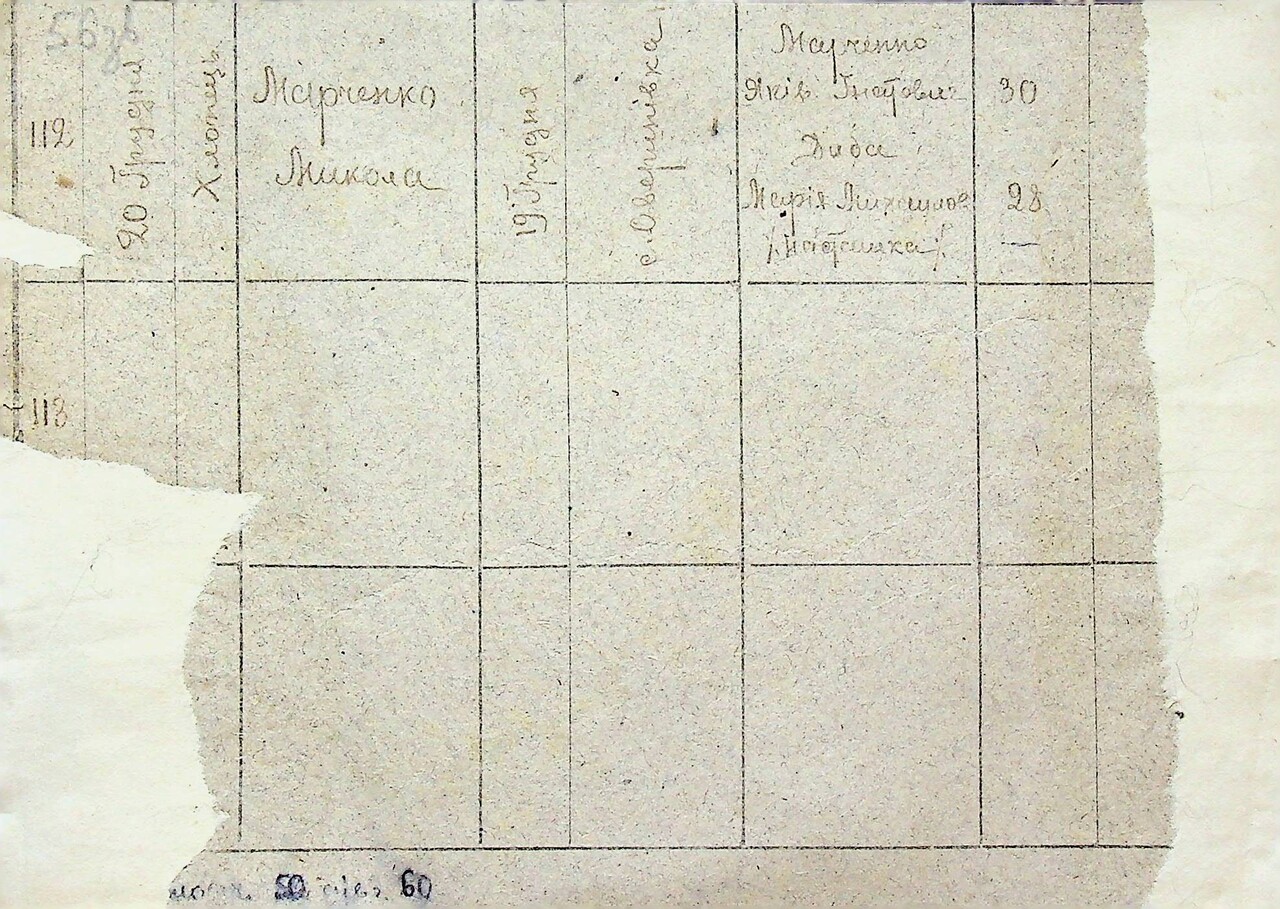 56зв
112
20 Грудня
Хлопець
Марченко
Микола
19 Грудня
с. Аверинівка
Марченко
Яків Гнатович 30
Диба
Марія Михайлов 28
113
50 60